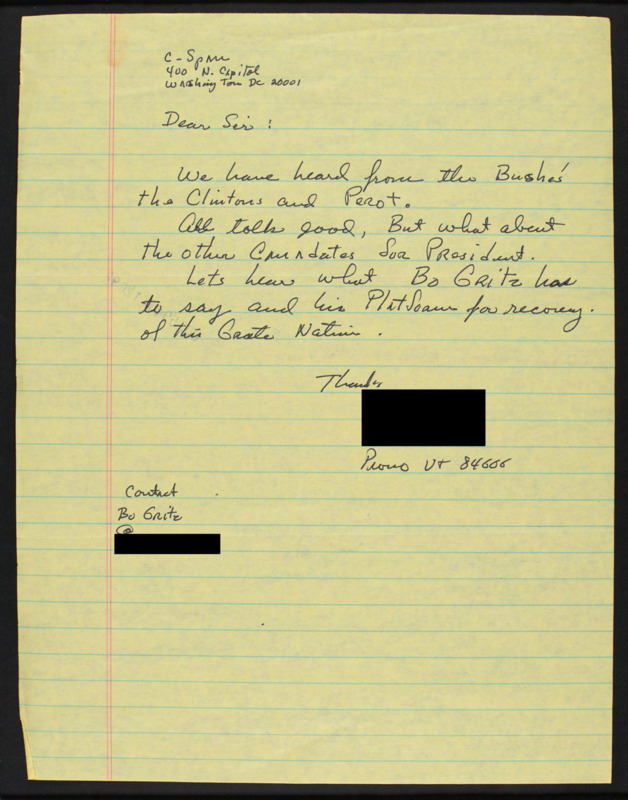 C-Span
400 N. Capitol
Washington DC 20001
Dear Sir:
We have heard from the Bushe's
the Clintons and Perot.
All talk good, But what about
the other Canndates for President.
Lets hear what Bo Gritz has
to say and his Platform for recovery.
of this Grate Nation.
Thanks
Provo UT 84606
Contact
Bo Gritz
@